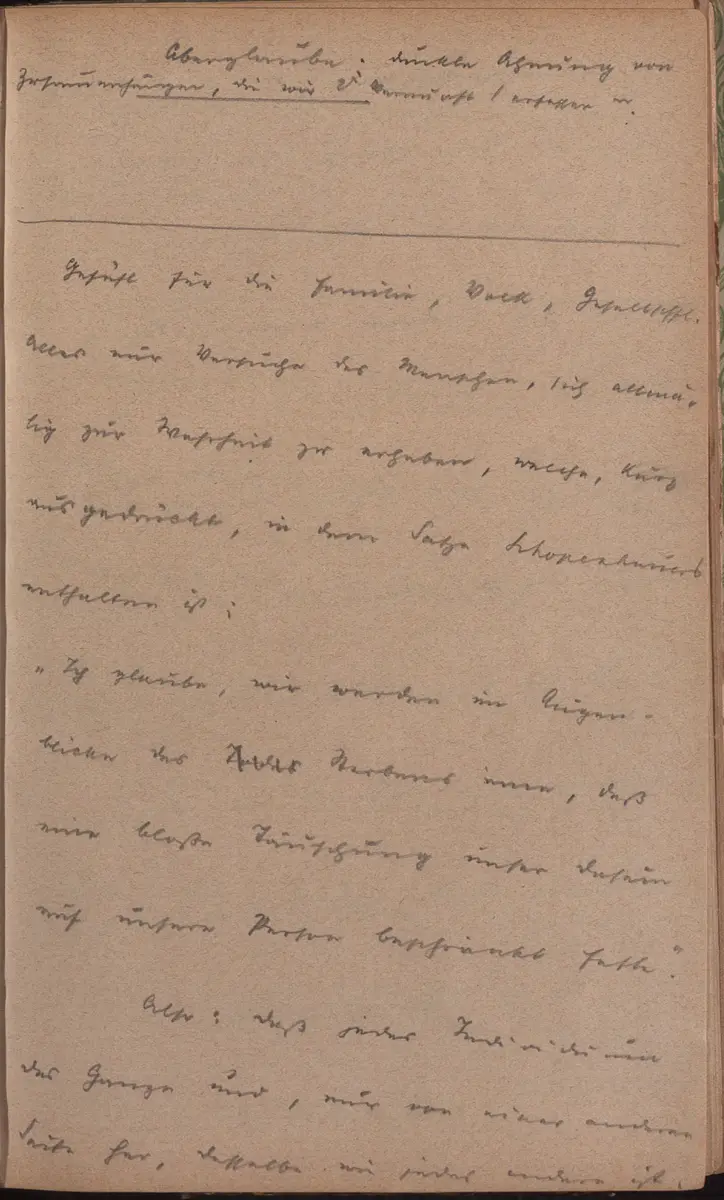 Aberglaube: dunkle Ahnung von
Zusammenhängen, die wir Vernunft erfassen
Gefühl für die Familie, Volk, Gesellschft.
Alles nur Versuche des Menschen, sich allmä-
lig zur Wahrheit zu erheben, welche, kurz
ausgedrückt, in dem Satze Schopenhauers
enthalten ist:
„Ich glaube, wir werden im Augen-
blicke des Todes Sterbens inne, daß
eine bloße Täuschung unser Dasein
auf unsere Person beschränkt hatte."
Also: daß jedes Individuum
das Ganze und, nur von einer anderen
Seite her, dasselbe wie jedes andere ist.